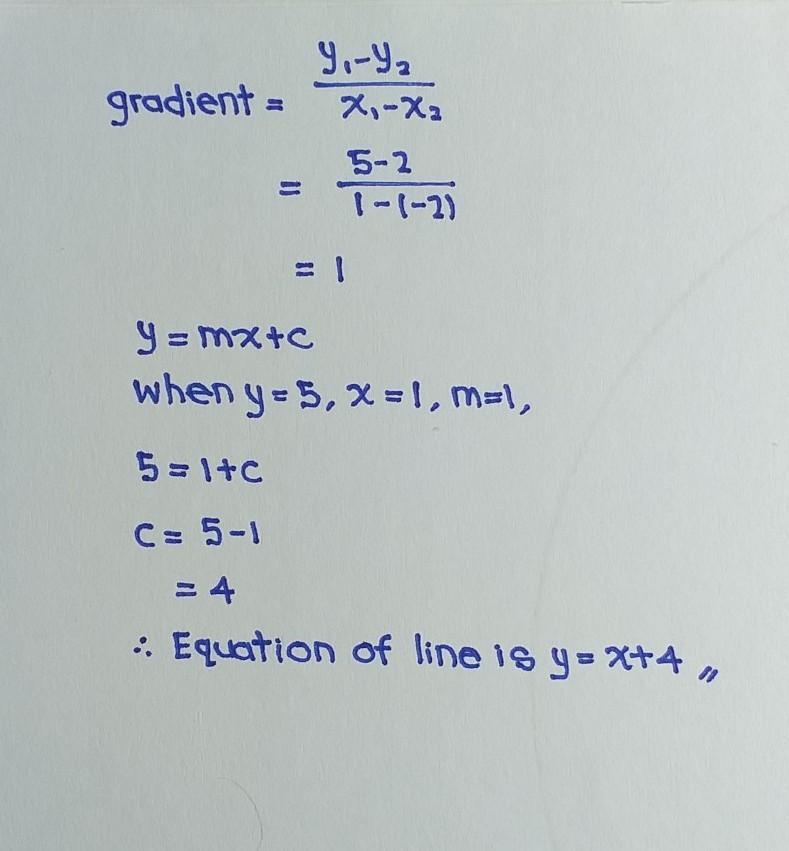 gradient = y₁-y₂ / x₁-x₂
= 5-2 / 1-(-2)
= 1
y = mx+c
when y = 5, x = 1, m=1,
5 = 1+c
c = 5-1
= 4
∴ Equation of line is y = x+4 〃